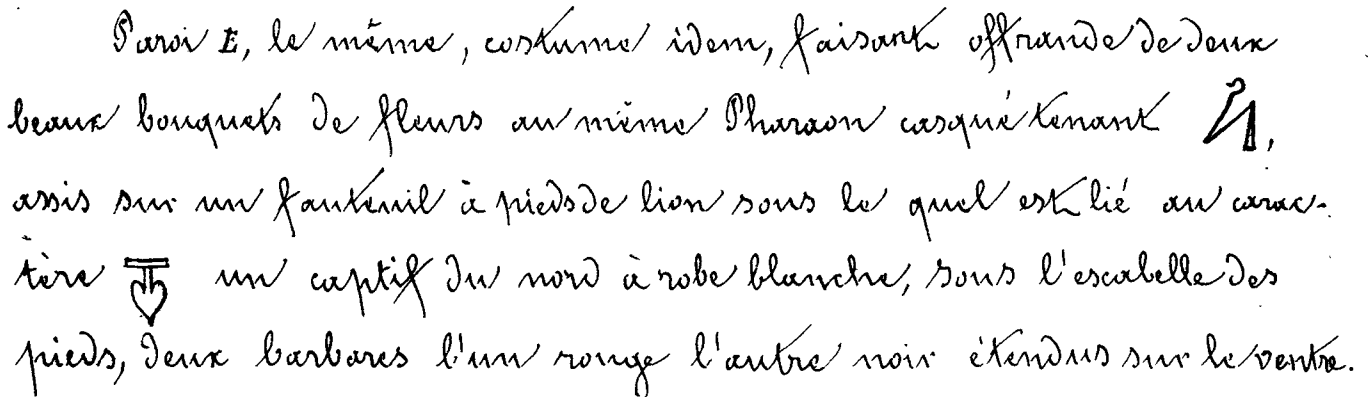 Paroi E, le même, costume idem, faisant offrande de deux
beaux bouquets de fleurs au même Pharaon casqué tenant ,
assis sur un fauteuil à pieds de lion sous le quel est lié au carac-
tère un captif du nord à robe blanche, sous l'escabelle des
pieds, deux barbares l'un rouge l'autre noir étendus sur le ventre.